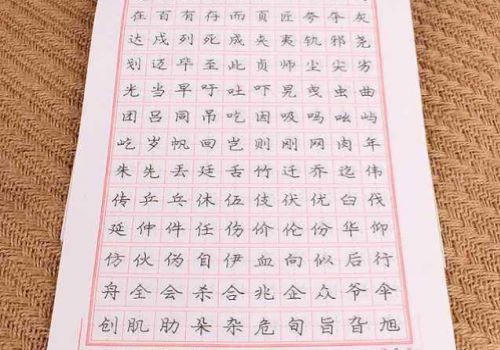 在百有存而页匠夸夺灰
达戍列死成夹夷轨邪尧
划迈毕至此贞师尘尖劣
光当早吁吐吓晃曳虫曲
团吕同吊吃因吸吗吆屿
屹岁帆回岂则刚网肉年
朱先丢廷舌竹迁乔迄伟
传乒乓休伍伎伏优臼伐
延仲件任伤价伦份华仰
仿伙伪自伊血向似后行
舟全会杀合兆企众爷伞
创肌肋朵杂危旬旨旮旭